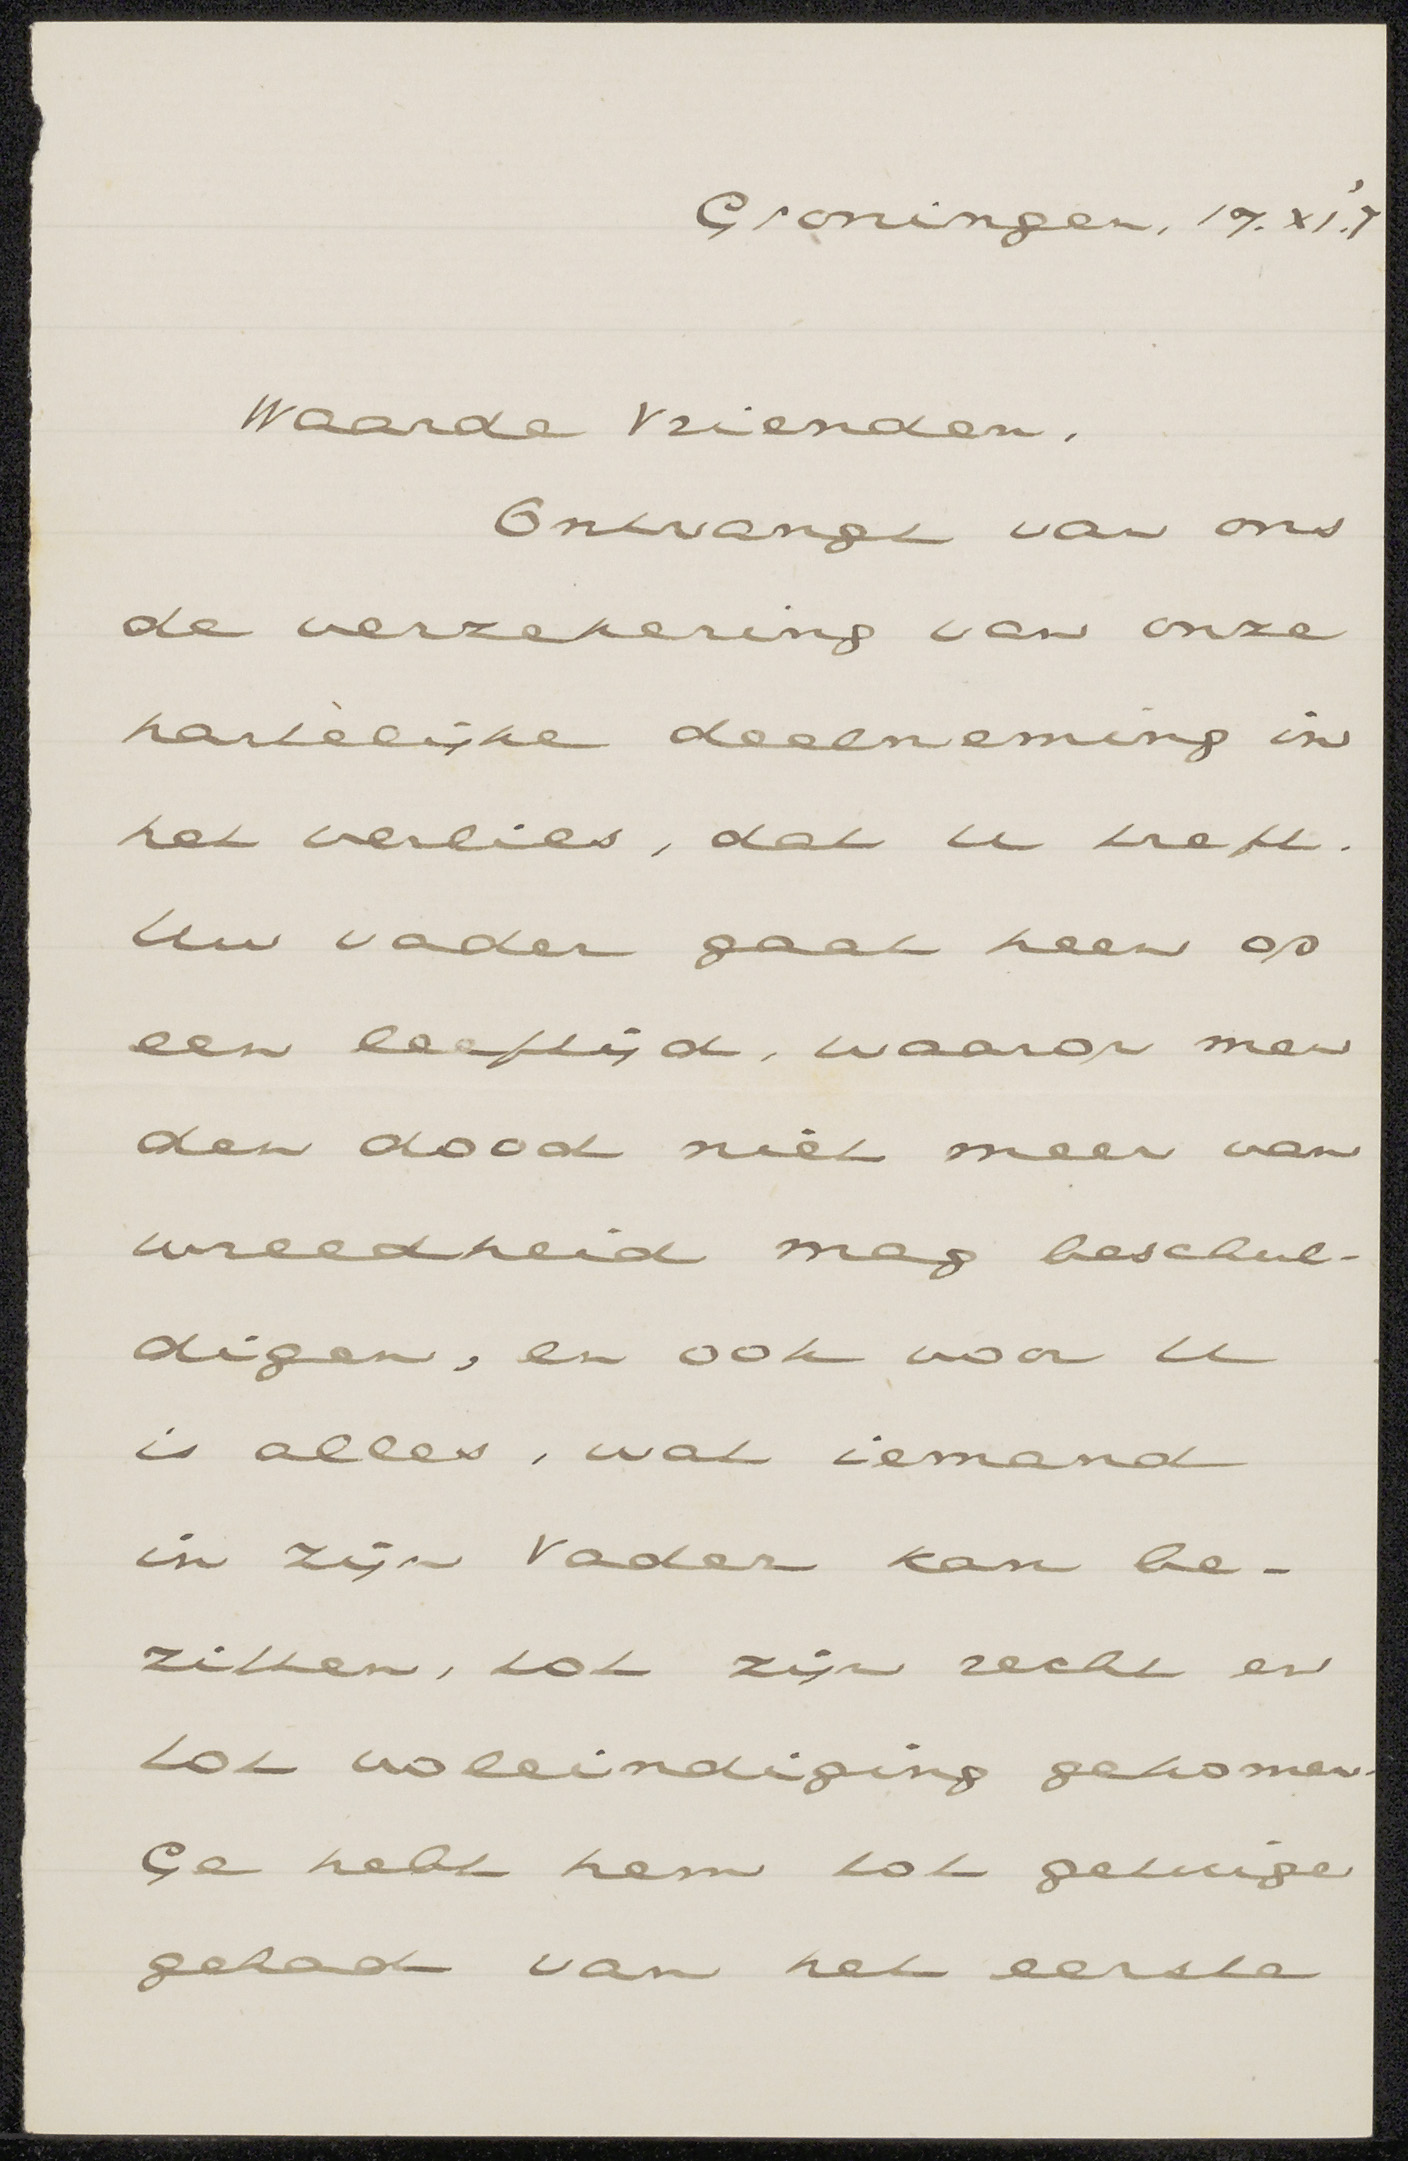 Groningen, 17.XI.'7
Waarde Vrienden,
Ontvangt van ons
de verzekering van onze
hartelijke deelneming in
het verlies, dat U treft.
Uw vader gaat heen op
een leeftijd, waarop men
den dood niet meer van
wreedheid mag beschul-
digen, en ook voor U
is alles, wat iemand
in zijn Vader kan be-
zitten, tot zijn recht en
tot voleindiging gekomen.
Ge hebt hem tot getuige
gehad van het eerste